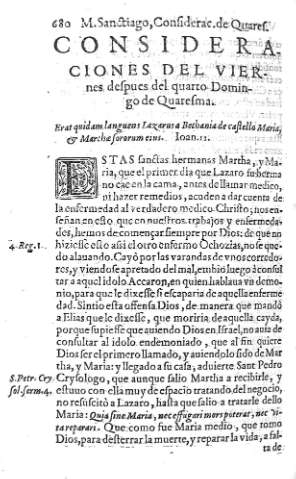 680 M. Sanctiago, Considerac. de Quares.
CONSIDERA
CIONES DEL VIER-
nes despues del quarto Domin
go de Quaresma.
Erat quidam languens Lazarus a Bethania de castello Mariæ,
& Marthæ sororum eius. Ioan. 11.
ESTAS sanctas hermanas Martha, y Ma-
ria, que el primer dia que Lazaro su herma
no cae en la cama, antes de llamar medico,
ni hazer remedios, acuden a dar cuenta de
la enfermedad al verdadero medico Christo; nos en
señan en esto, que en nuestros trabajos y enfermeda-
des, hemos de començar siempre por Dios: de que no
4. Reg. 1. hiziesse esto assi el otro enfermo Ochozias, no se que-
do alauando. Cayò por las varandas de vnos corredo-
res, y viendose apretado del mal, embio luego à consul
tar a aquel idolo Accaron, en quien hablaua vn demo-
nio, para que le dixesse si escaparia de aquella enferme
dad. Sintio esta offensa Dios, de manera que mandò
a Elias que le dixesse, que moriria de aquella cayda,
porque supiesse que auiendo Dios en Israel, no auia de
consultar al idolo endemoniado, que al fin quiere
Dios ser el primero llamado, y auiendolo sido de Mar
tha, y Maria: y llegado a su casa, aduierte Sant Pedro
S. Petr. Cry Crysologo, que aunque salio Martha a recibirle, y
sol. serm. 4. estuuo con ella muy de espacio tratando del negocio,
no resuscitò a Lazaro, hasta que salio a tratarle dello
Maria: Quia sine Maria, nec effugari mors poterat, nec vi-
ta reparari. Que como fue Maria medio, que tomo
Dios, para desterrar la muerte, y reparar la vida, a fal-
ta de